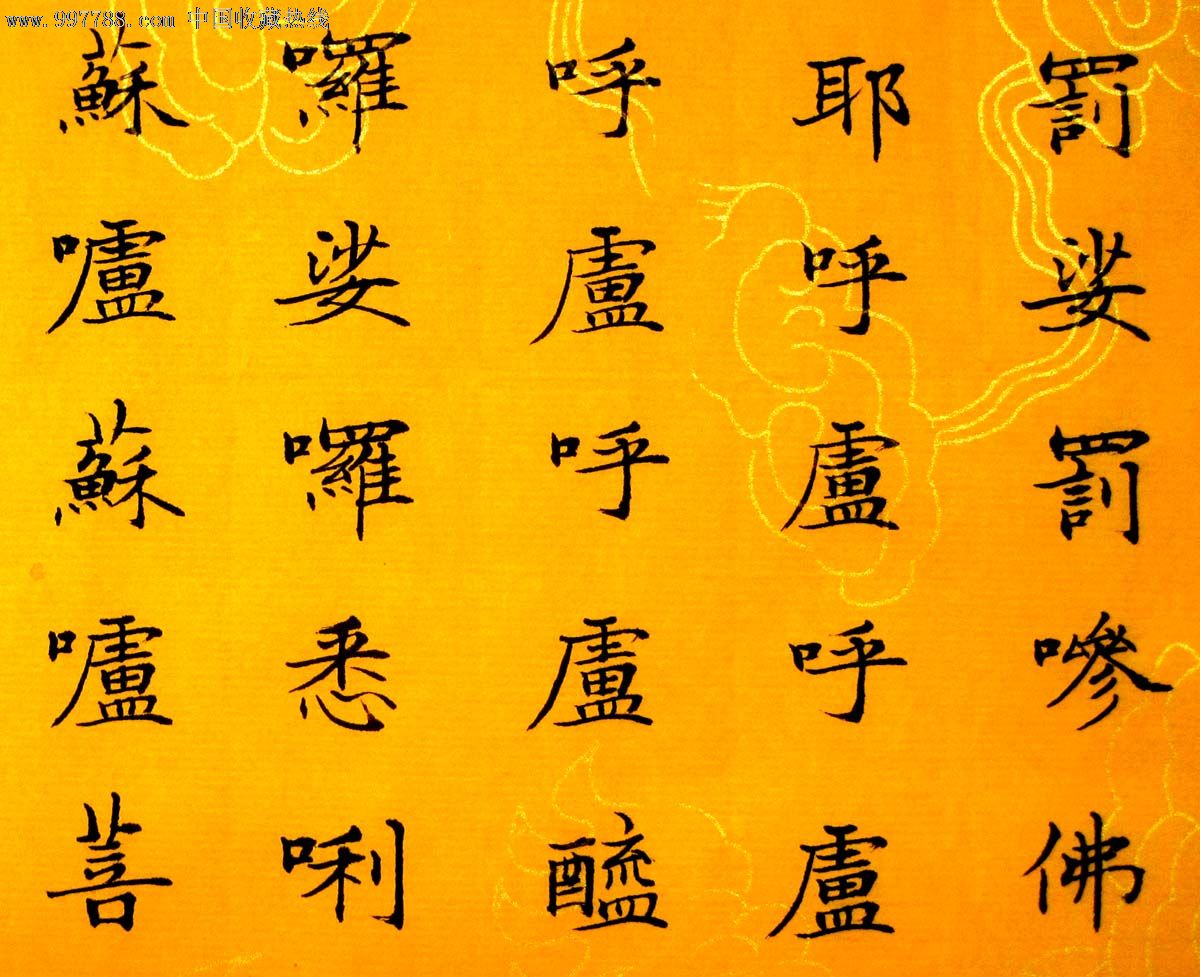 www.997788.com 中国收藏热线
罰娑罰嘇佛
耶呼盧呼盧
呼盧呼盧醯
囉娑囉悉唎
蘇嚧蘇嚧菩